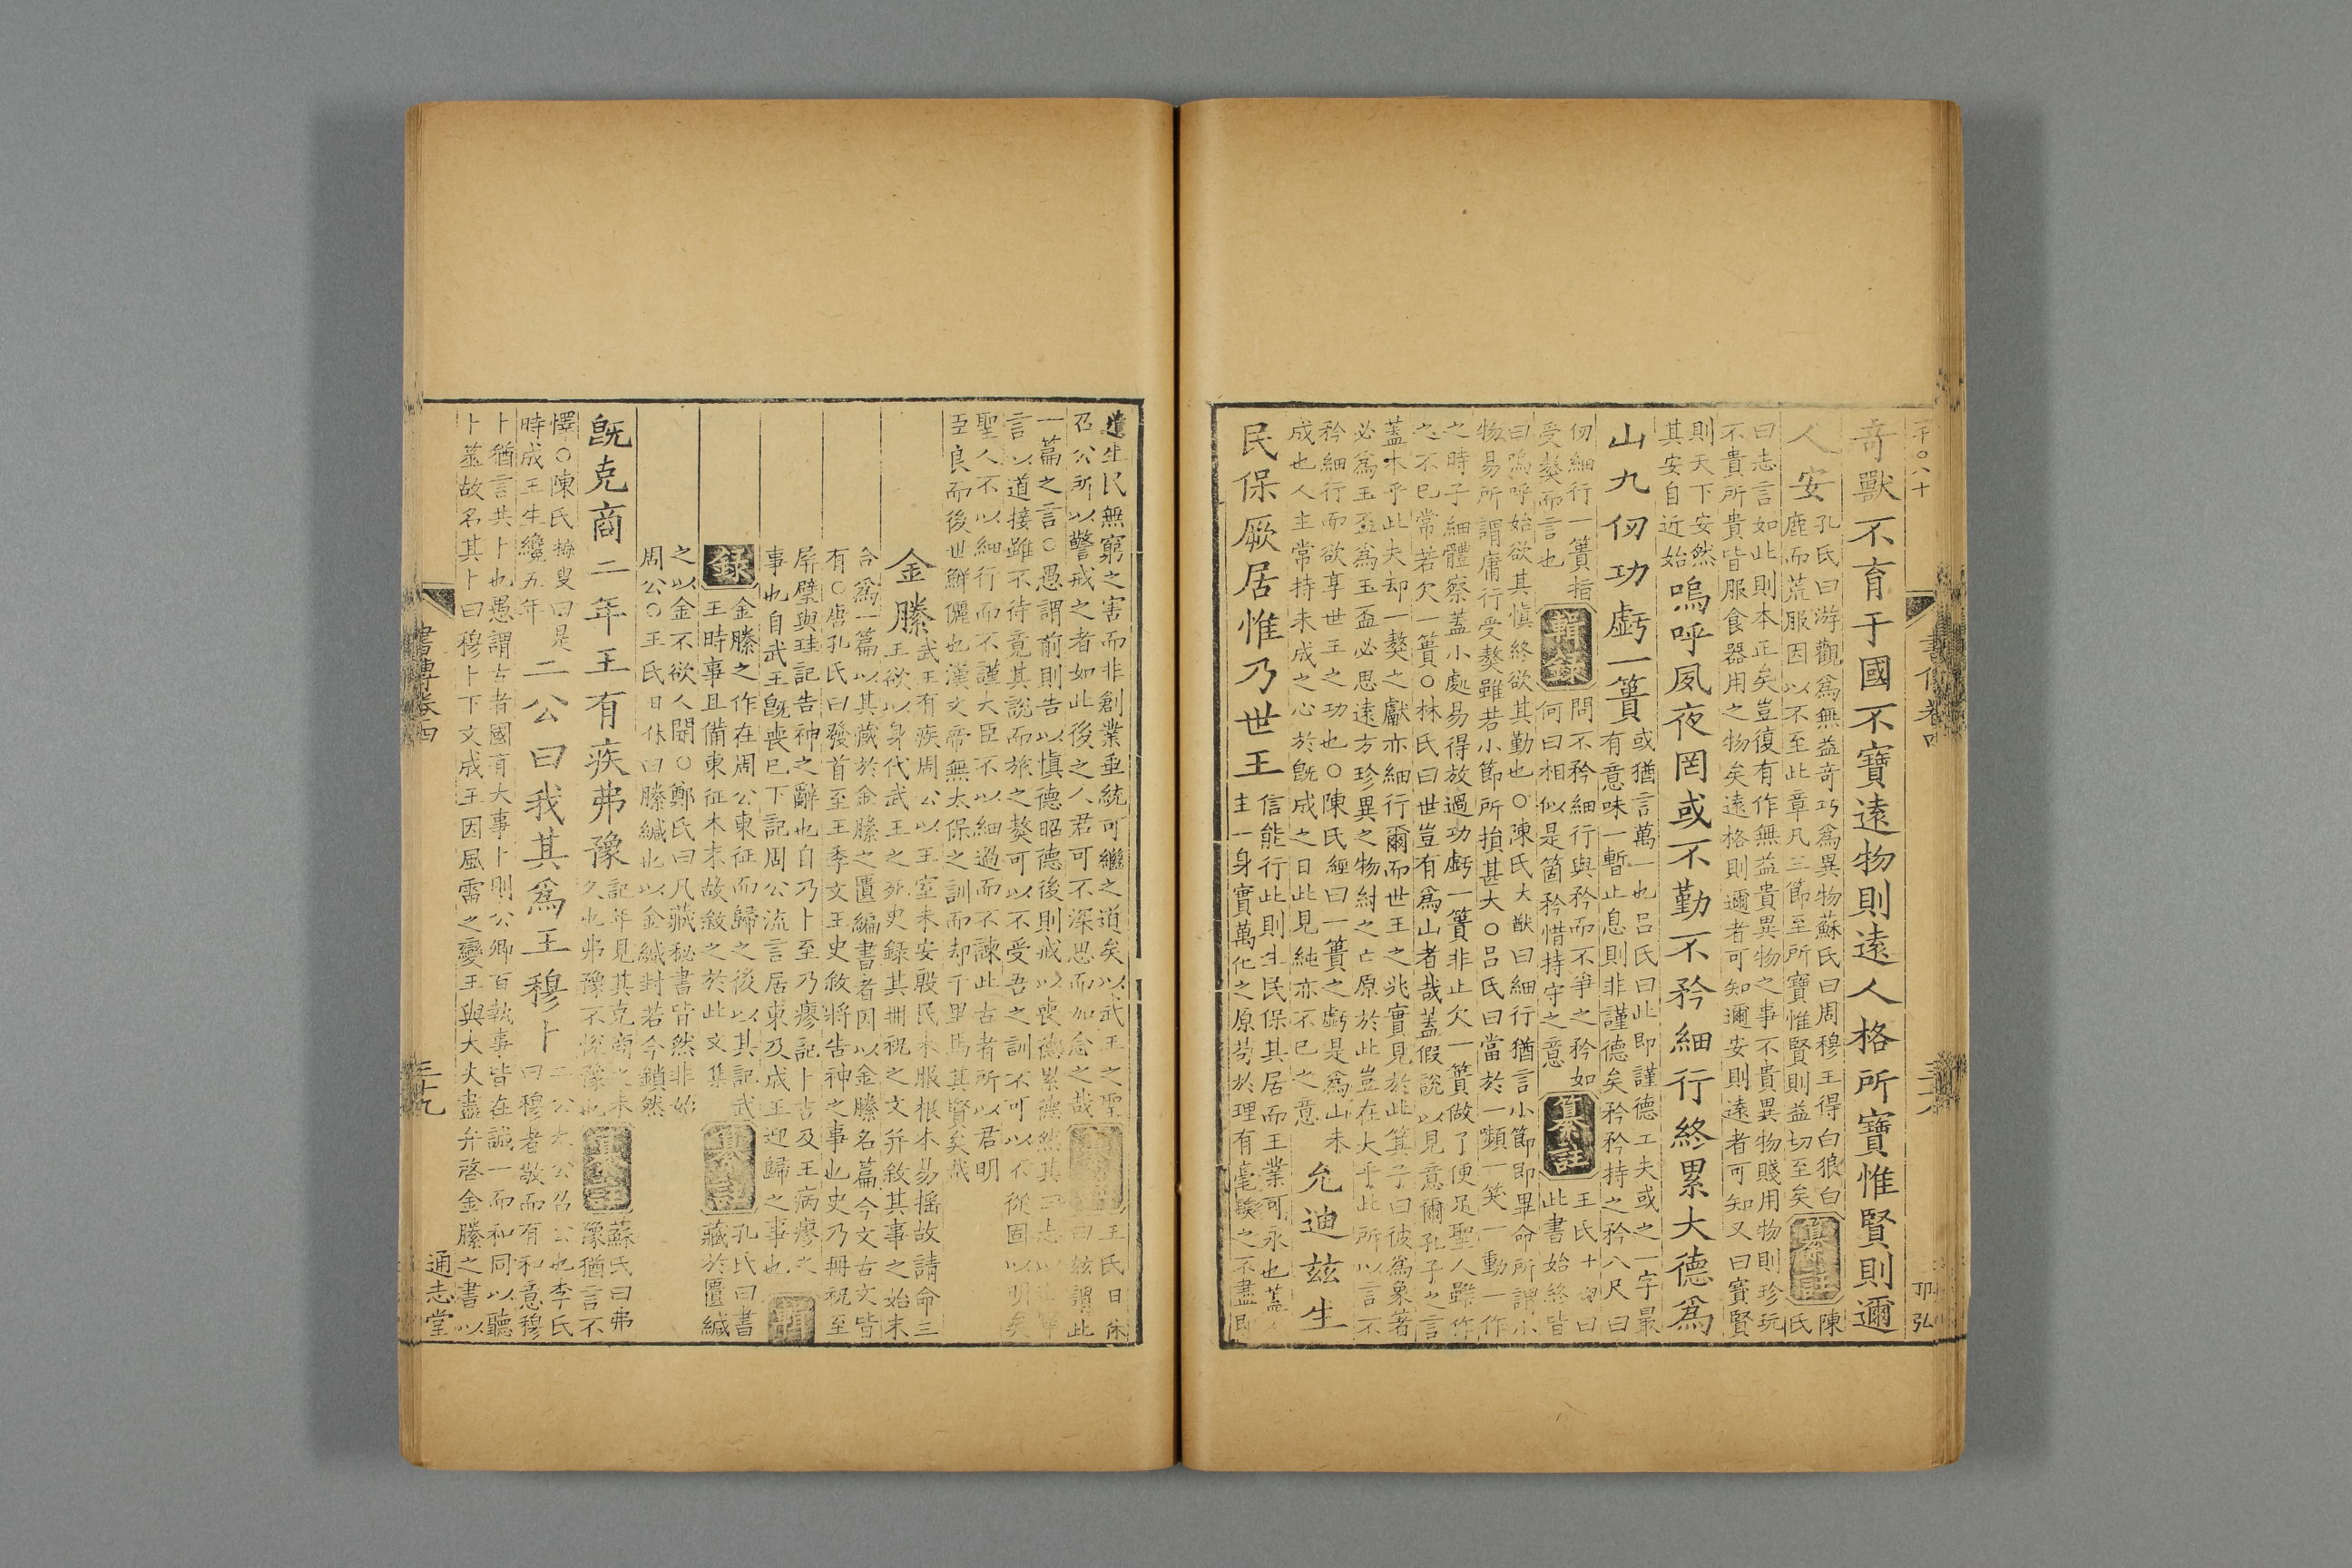 書傳卷四
奇獸不育于國不寶遠物則遠人格所寶惟賢則邇
人安
孔氏曰游觀爲無益奇巧爲異物蘇氏曰周穆王得白狼白
鹿而荒服因以不至此章凡三節至所寶惟賢則益切至矣
纂註
陳
氏
曰志言如此則本正矣豈復有作無益貴異物之事不貴異物賤用物則珍玩
不貴所貴皆服食器用之物矣遠格則邇者可知邇安則遠者可知又曰寶賢
則天下安然
其安自近始
嗚呼夙夜罔或不勤不矜細行終累大德爲
山九仞功虧一簣
或猶言萬一也呂氏曰此即謹德工夫或之一字最
有意味一暫止息則非謹德矣矜矜持之矜八尺曰
仞細行一簣指
受獒而言也
輯錄
問不矜細行與矜而不爭之矜如
何曰相似是箇矜惜持守之意
纂註
王氏十朋曰
此書始終皆
曰嗚呼始欲其慎終欲其勤也○陳氏大猷曰細行猶言小節即畢命所謂小
物易所謂庸行受獒雖若小節所損甚大○呂氏曰當於一嚬一笑一動一作
之時子細體察蓋小處易得放過功虧一簣非止欠一簣做了便足聖人雖作
之不已常若欠一簣○林氏曰世豈有爲山者哉蓋假說以見意爾孔子之言
蓋本乎此夫却一獒之獻亦細行爾而世王之兆實見於此箕子曰彼爲象箸
必爲玉盃爲玉盃必思遠方珍異之物紂之亡原於此豈在大乎此所以言不
矜細行而欲享世王之功也○陳氏經曰一簣之虧是爲山未
成也人主常持未成之心於旣成之日此見純亦不已之意
允迪兹生
民保厥居惟乃世王
信能行此則生民保其居而王業可永也蓋人
主一身實萬化之原苟於理有毫髮之不盡即
遺生民無窮之害而非創業垂統可繼之道矣以武王之聖
召公所以警戒之者如此後之人君可不深思而加念之哉
纂註
王氏曰休
曰兹謂此
一篇之言○愚謂前則告以愼德昭德後則戒以喪德累德然其曰志以
言以道接雖不待竟其說而旅之獒可以不受吾之訓不可以不從固以明矣
聖人不以細行而不謹大臣不以細過而不諫此古者所以君明
臣良而後世鮮儷也漢文帝無太保之訓而却千里馬其賢矣哉
金縢
武王有疾周公以王室未安殷民未服根本易搖故請命三
王欲以身代武王之死史錄其冊祝之文并敘其事之始末
合爲一篇以其藏於金縢之匱編書者因以金縢名篇今文古文皆
有○唐孔氏曰發首至王季文王史敘將告神之事也史乃冊祝至
屏璧與珪記告神之辭也自乃卜至乃瘳記卜吉及王病瘳之
事也自武王旣喪已下記周公流言居東及成王迎歸之事也
輯
錄
金縢之作在周公東征而歸之後以其記武
王時事且備東征本末故敘之於此文集
纂註
孔氏曰書
藏於匱緘
之以金不欲人開○鄭氏曰凡藏秘書皆然非始
周公○王氏日休曰縢緘也以金緘封若今鎖然
旣克商二年王有疾弗豫
記年見其克商之未
久也弗豫不悅豫也
纂註
蘇氏曰弗
豫猶言不
懌○陳氏梅叟曰是
時成王生纔五年
二公曰我其爲王穆卜
二公太公召公也李氏
曰穆者敬而有和意穆
卜猶言共卜也愚謂古者國有大事卜則公卿百執事皆在誠一而和同以聽
卜筮故名其卜曰穆卜下文成王因風雷之變王與大夫盡弁啓金縢之書以
書傳卷四
三十九
通志堂